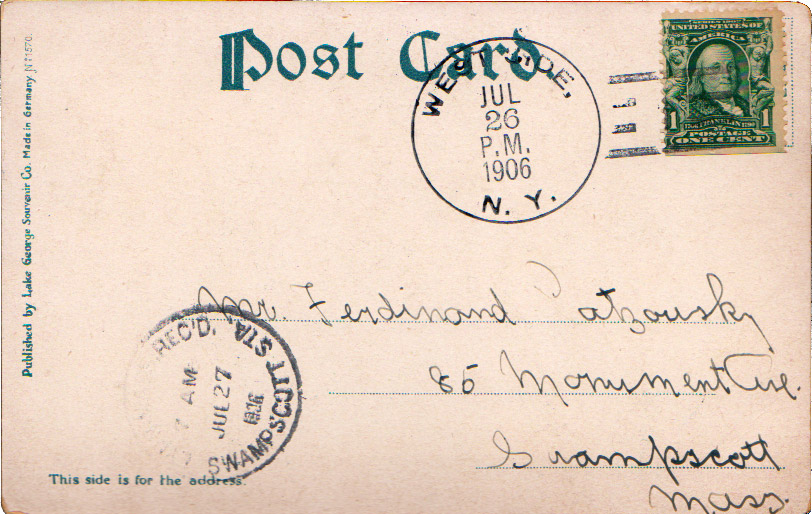 Post Card.
WEST SIDE,
JUL
26
P.M.
1906
N. Y.
SERIES 1902
UNITED STATES OF
AMERICA
1 FRANKLIN 1
POSTAGE
ONE CENT
Published by Lake George Souvenir Co. Made in Germany
Mr. Ferdinand Patzowsky
85 Monument Ave.
Swampscott
Mass.
REC'D.
7 AM
JUL 27
1906
SWAMPSCOTT STA.
This side is for the address.